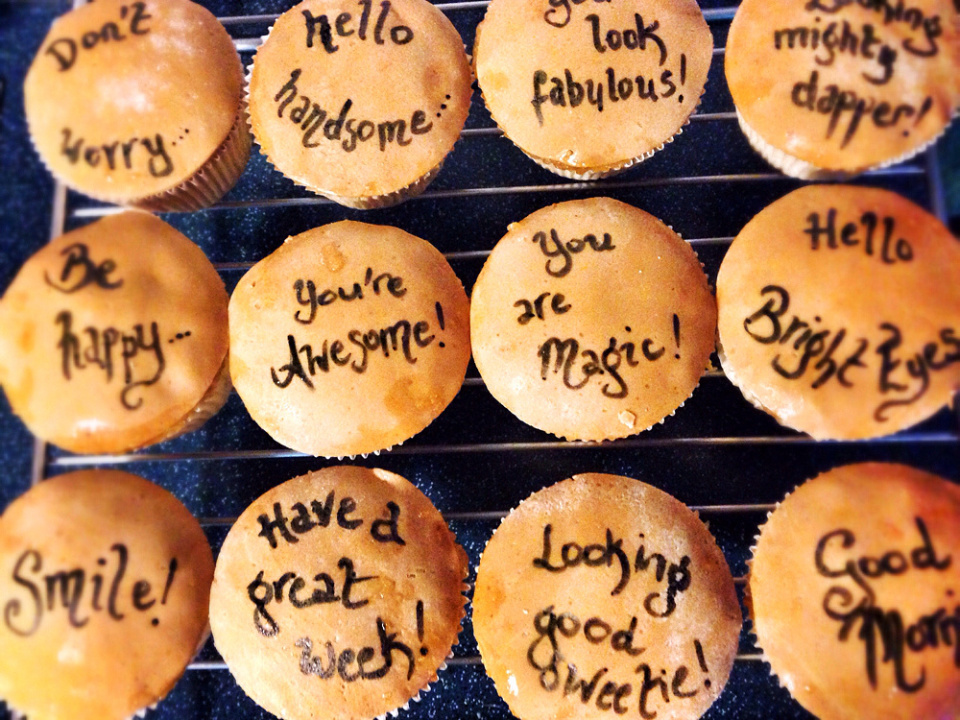 Don't
worry...
hello
handsome...
you
look
fabulous!
Looking
mighty
dapper!
Be
happy...
You're
Awesome!
You
are
Magic!
Hello
Bright Eyes
Smile!
Have a
great
week!
Looking
good
sweetie!
Good